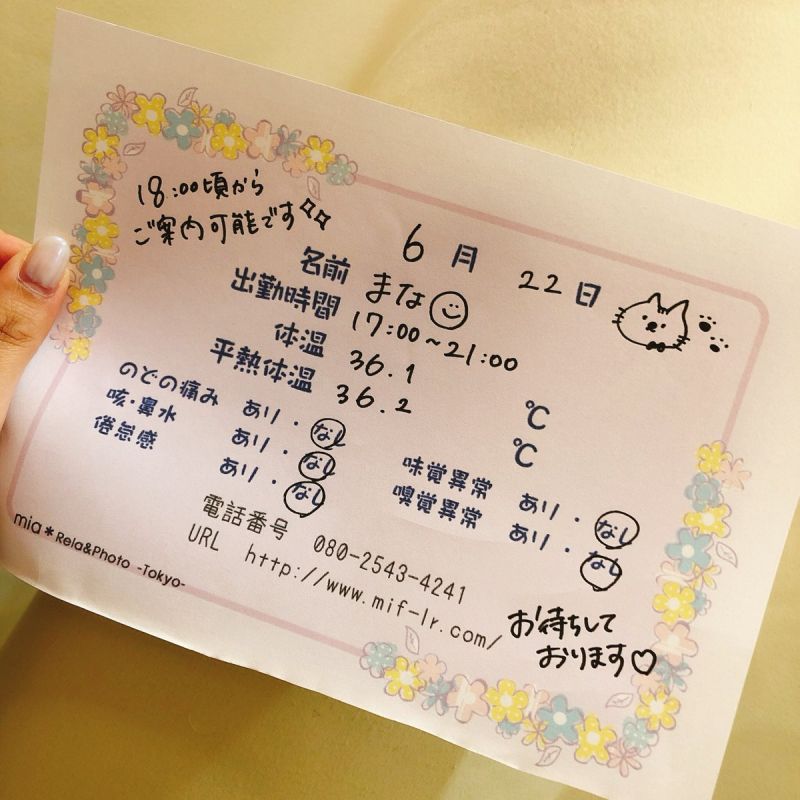 18:00頃から
ご案内可能です
6月 22日
名前 まな
出勤時間 17:00~21:00
体温 36.1 ℃
平熱体温 36.2 ℃
のどの痛み あり・なし
咳・鼻水 あり・なし
倦怠感 あり・なし
味覚異常 あり・なし
嗅覚異常 あり・なし
電話番号 080-2543-4241
URL http://www.mif-lr.com/
mia*Rela&Photo -Tokyo-
お待ちして
おります♡